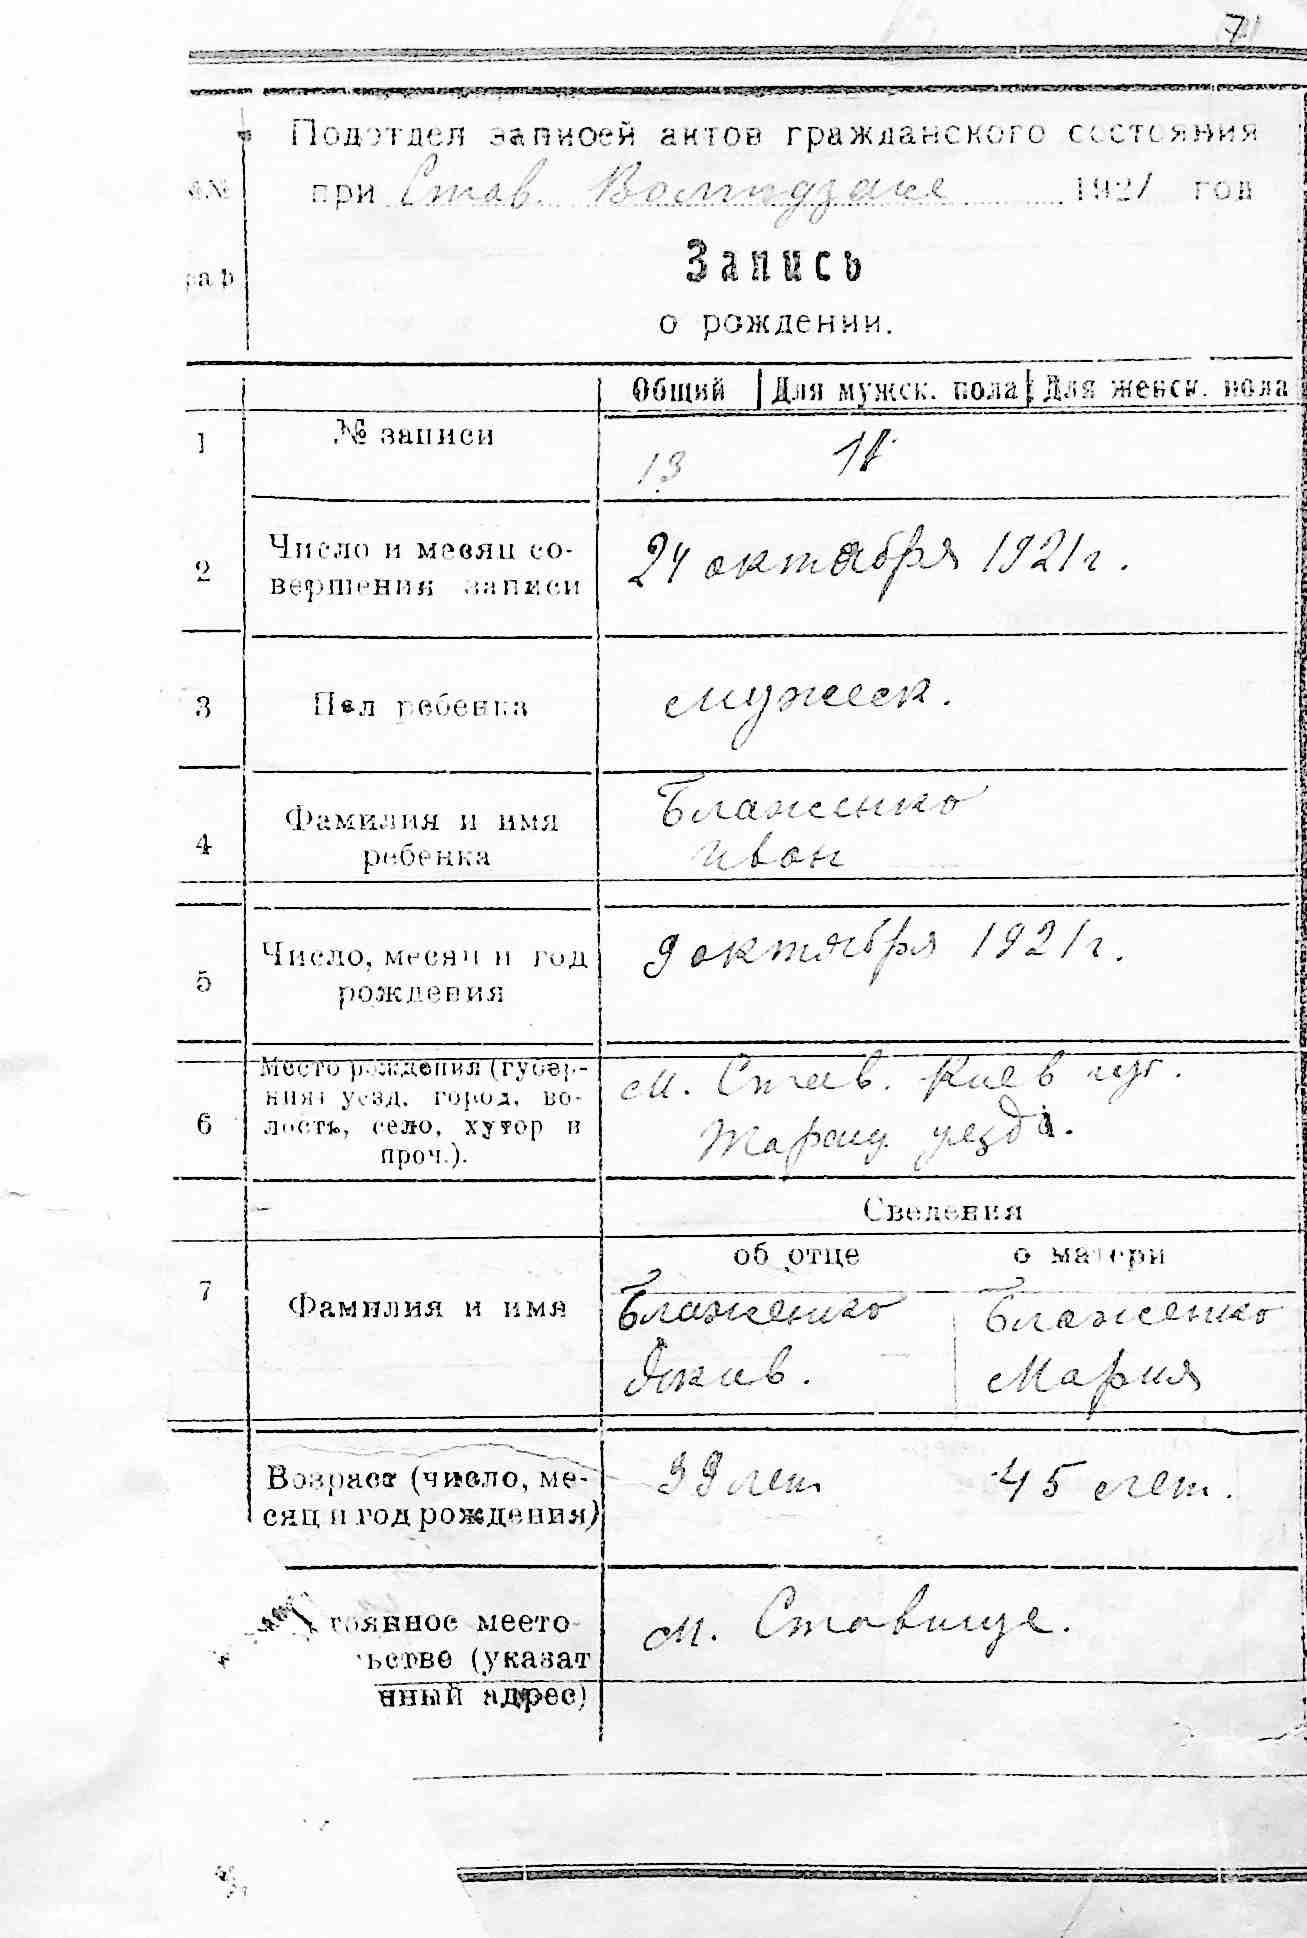 71
Подотдел записей актов гражданского состояния
при Став. 1921 год
Запись
о рождении.
Общий Для мужск. пола Для женск. пола
1 № записи
13
2 Число и месяц со-
вершения записи
24 октября 1921 г.
3 Пол ребенка
мужеск.
4 Фамилия и имя
ребенка
Блаженко
Иван
5 Число, месяц и год
рождения
9 октября 1921 г.
6 Место рождения (губер-
ния, уезд, город, во-
лость, село, хутор и
проч.).
м. Став. Киев губ.
Таращ. уезда.
Сведения
об отце о матери
7 Фамилия и имя
Блаженко Блаженко
Мария
Возраст (число, ме-
сяц и год рождения)
39 лет 45 лет.
тоянное место-
ьство (указат
нный адрес)
м. Ставище.